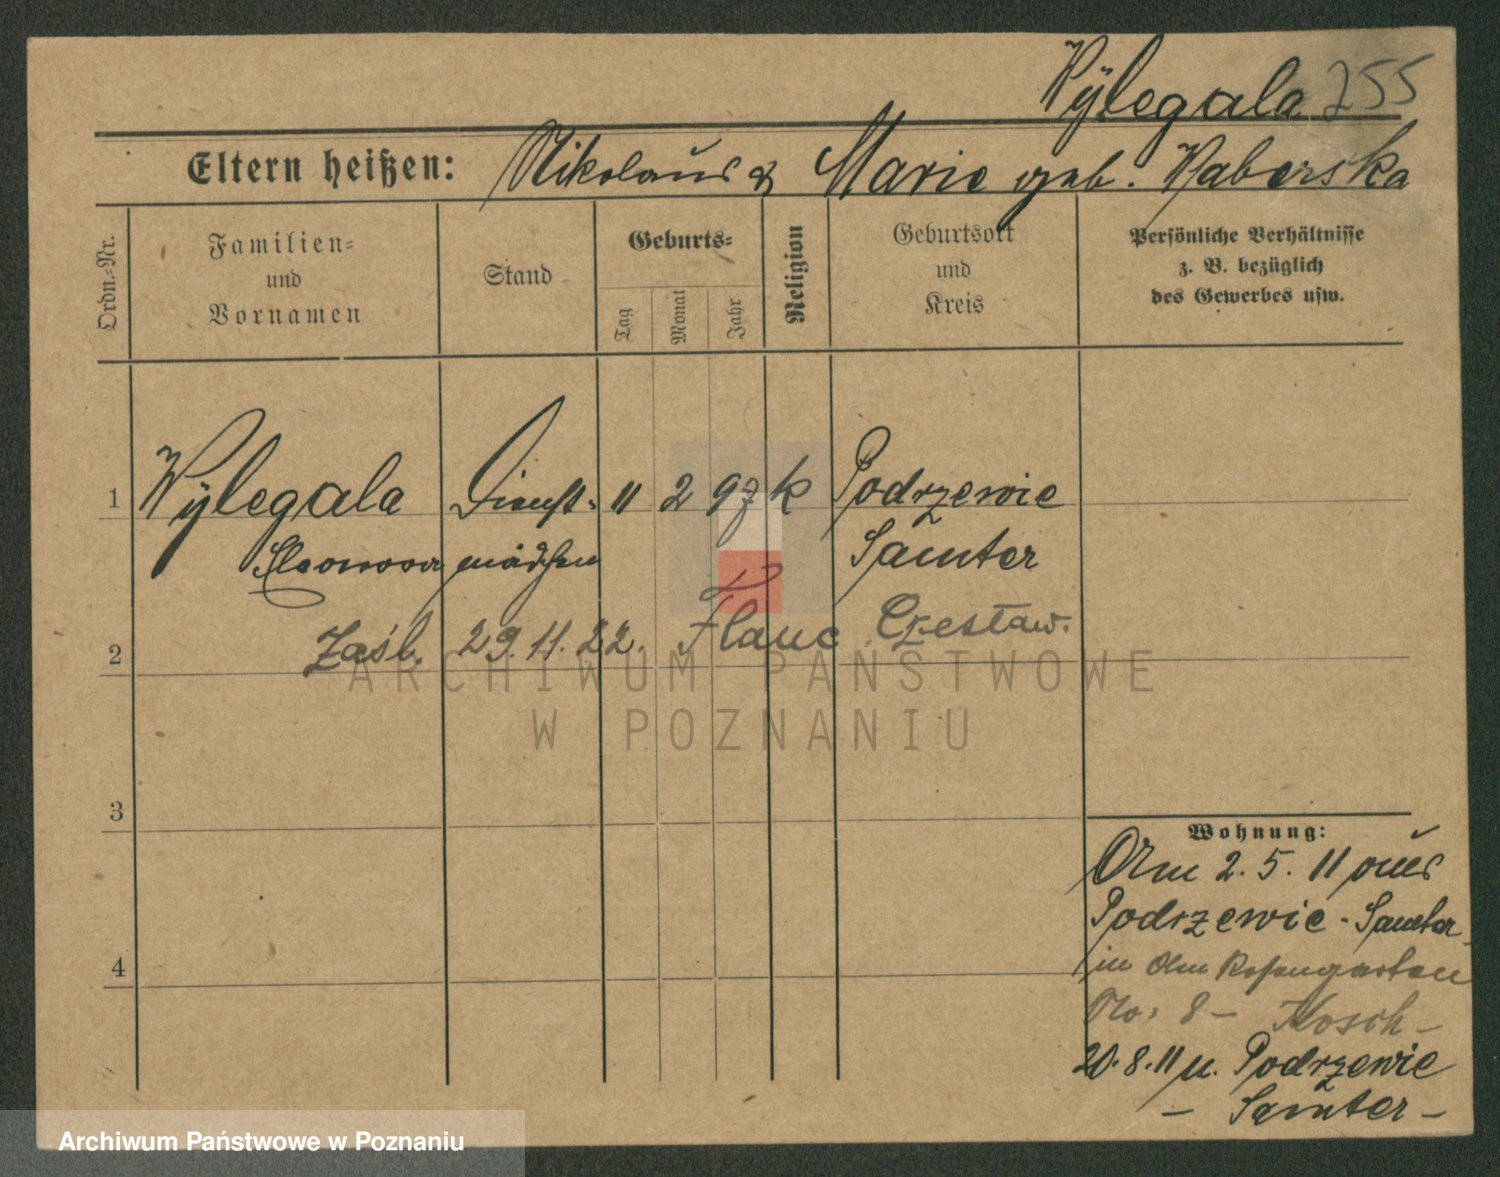 Wÿlegala 255
Eltern heißen: Nikolaus & Marie geb. Haberska
Ordn.-Nr.
Familien-
und
Vornamen
Stand
Geburts-
Tag
Monat
Jahr
Religion
Geburtsort
und
Kreis
Persönliche Verhältnisse
z. B. bezüglich
des Gewerbes usw.
1 Wÿlegala Dienst- 11 2 97 k Podrzewie
Eleonora mädchen Samter
2 Zaśl. 29.11.22. Czesław.
3
4
Wohnung:
Am 2.5.11 aus
Podrzewie - Samter
in Alm Rosengarten
No: 8 - Kosch -
20.8.11 n. Podrzewie
- Samter -
ARCHIWUM PAŃSTWOWE
W POZNANIU
Archiwum Państwowe w Poznaniu